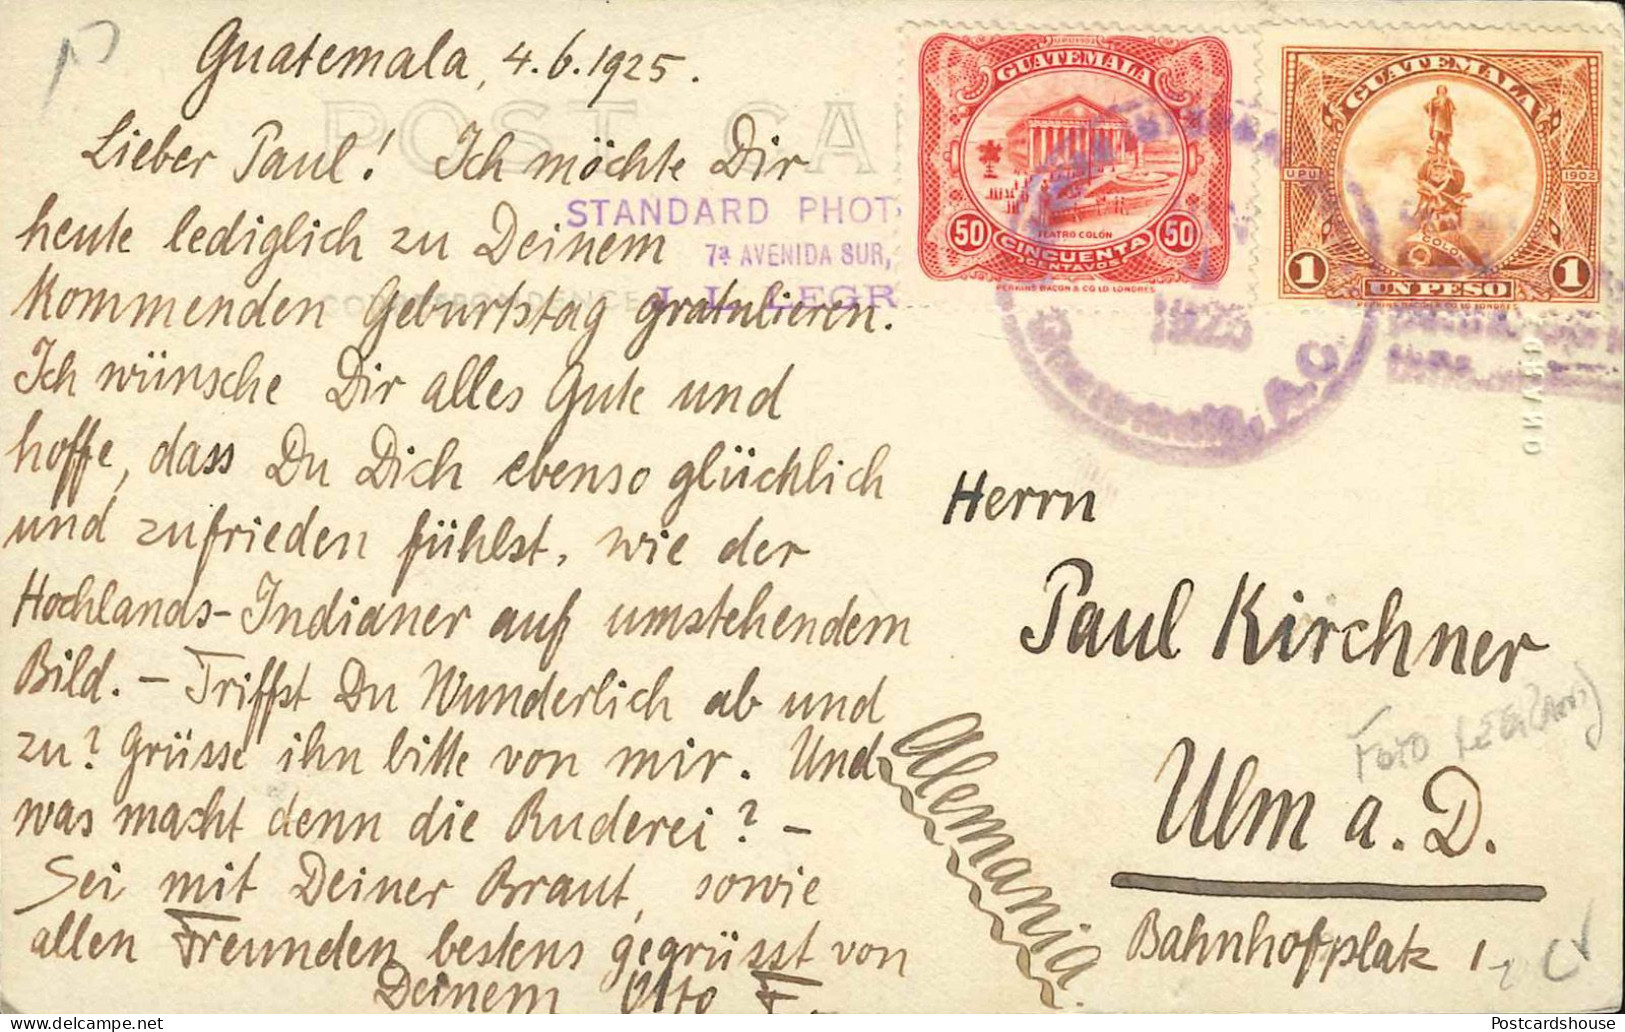 Guatemala, 4.6.1925.
POST CA
Lieber Paul! Ich möchte Dir
heute lediglich zu Deinem
kommenden Geburtstag gratulieren.
Ich wünsche Dir alles Gute und
hoffe, dass Du Dich ebenso glücklich
und zufrieden fühlst, wie der
Hochlands-Indianer auf umstehendem
Bild. – Triffst Du Wunderlich ab und
zu? Grüsse ihn bitte von mir. Und
was macht denn die Ruderei? –
Sei mit Deiner Braut, sowie
allen Freunden bestens gegrüsst von
Deinem Otto F.
STANDARD PHOT
7ª AVENIDA SUR,
J. L. LEGR
U.P.U. 1902
GUATEMALA
TEATRO COLÓN
50 CINCUENTA 50
CENTAVOS
PERKINS BACON & CO LD LONDRES
GUATEMALA
U.P.U. 1902
COLON
1 UN PESO 1
PERKINS BACON & CO LD LONDRES
1925
Guatemala, A.C.
Herrn
Paul Kirchner
Ulm a. D.
Bahnhofplatz 1
Alemania.
Foto
Postcardshouse